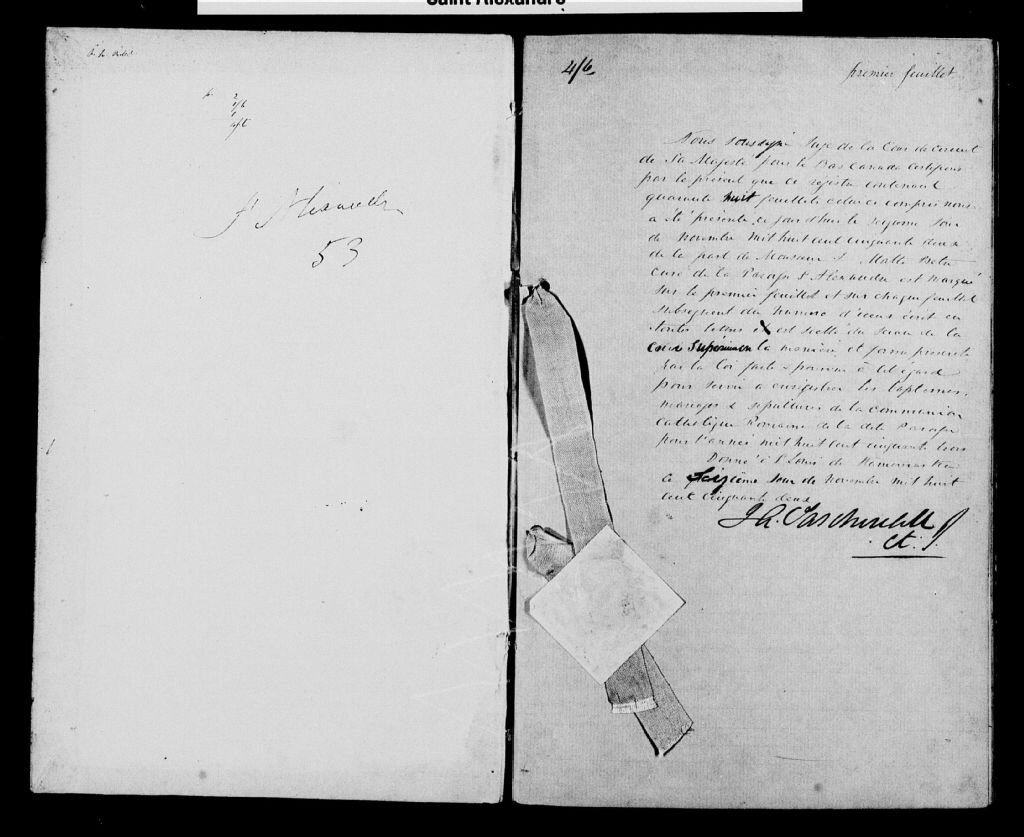 Saint Alexandre
St Alexandre
53
4/6
premier feuillet
Nous soussigné Juge de la Cour de Circuit
de Sa Majesté pour le Bas Canada Certifions
par le présent que ce registre contenant
quarante huit feuillets celui ci compris nous
a été présenté ce jour d'hui le seizieme jour
de Novembre mil huit cent cinquante deux
de la part de Monsieur
Curé de la Paroisse St Alexandre est marqué
sur le premier feuillet et sur chaque feuillet
subsequent du numero d'iceux écrit en
toutes lettres et est scellé du sceau de la
Cour Supérieure en la manière et forme prescrite
par la loi faite & pourvue à cet égard
pour servir a enregistrer les baptemes,
mariages & sepultures de la Communion
Catholique Romaine de la dite Paroisse
pour l'année mil huit cent cinquante trois
Donné à St Louis de Kamouraska
ce Seizième jour de Novembre mil huit
cent cinquante deux